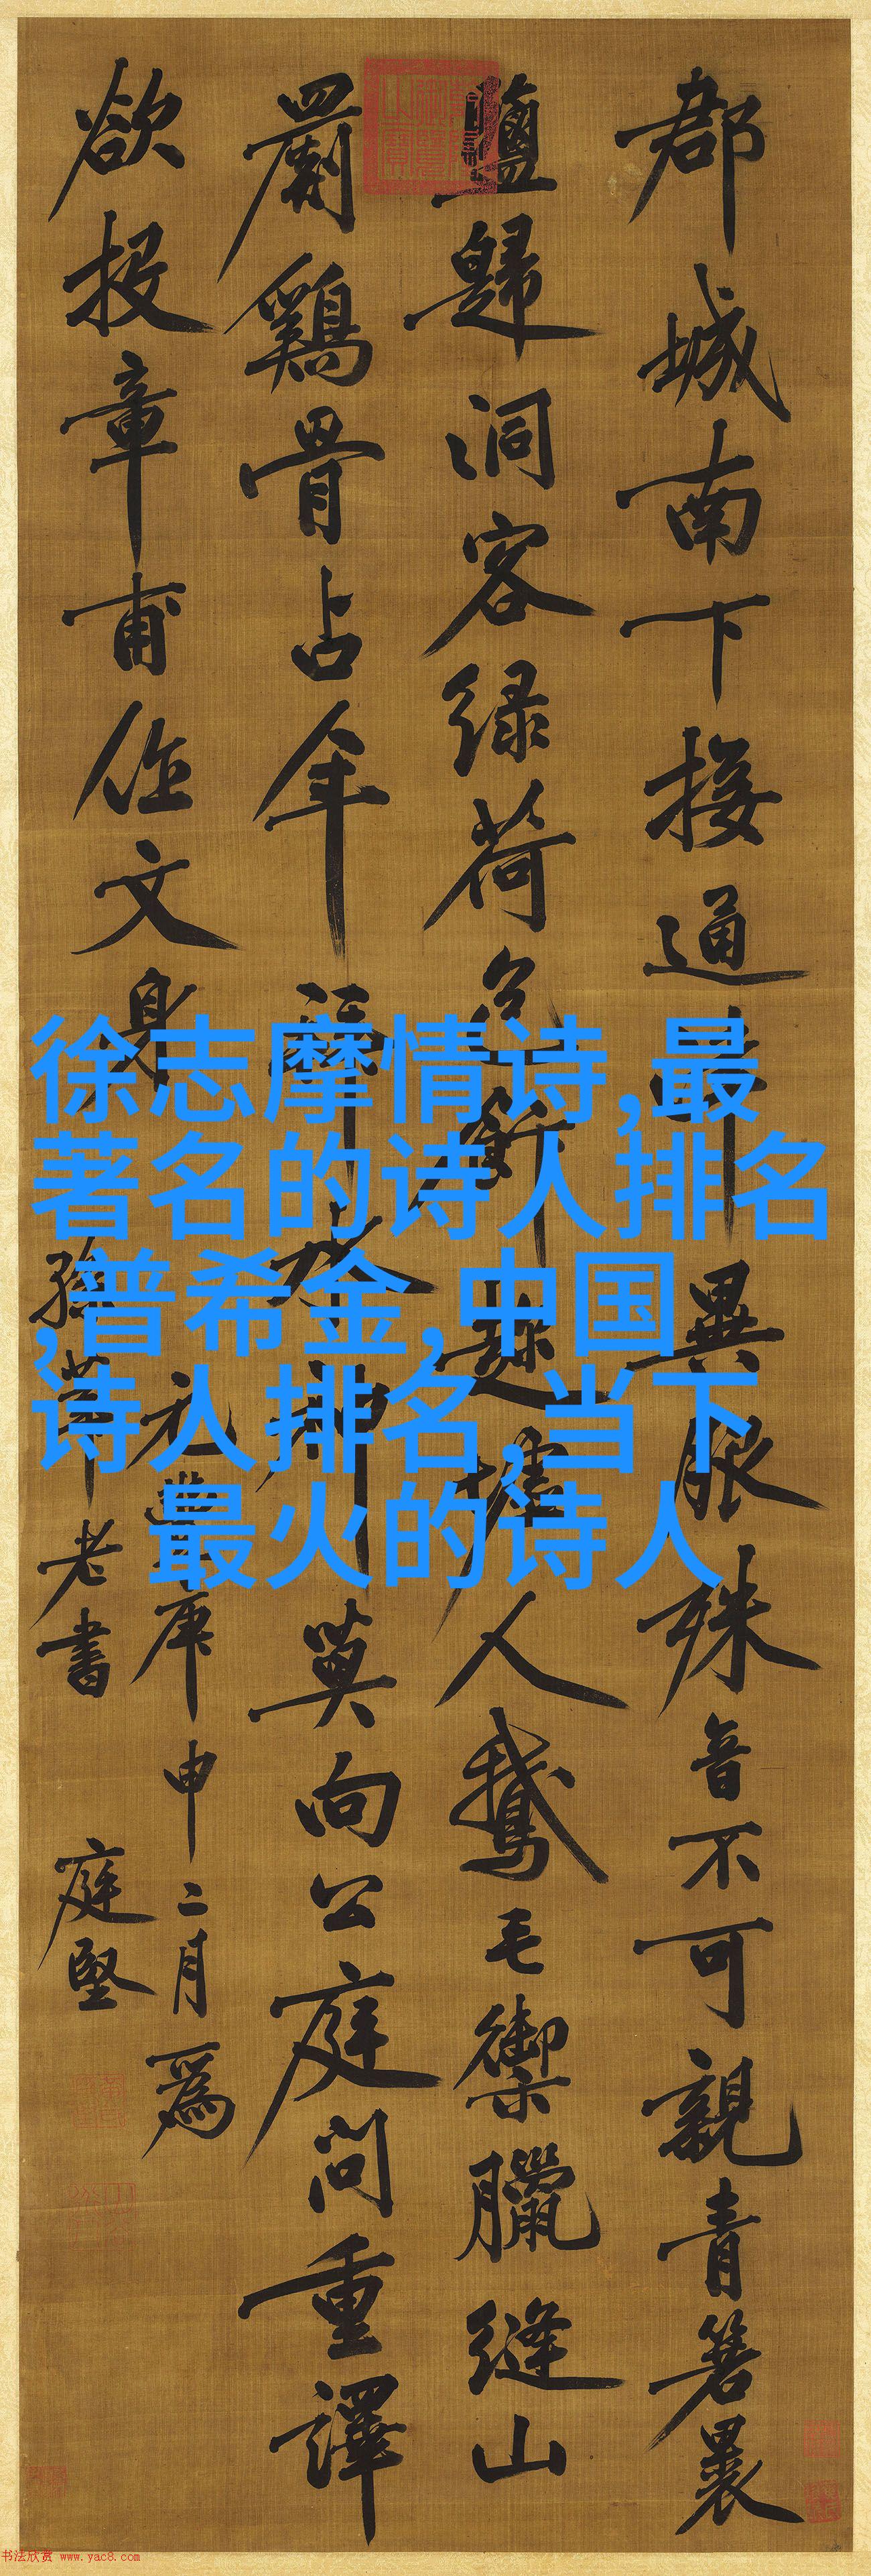 郡城南下接通津異服殊音不可親青箬裹
鹽歸洞客绿荷包飯趁墟人鵞毛御臘缝山
罽鷄骨占年拜水神莫向公庭問重譯
欲投章甫作文身
元豐庚申二月爲
孫莘老書 庭堅
徐志摩情诗,最
著名的诗人排名
,普希金,中国
诗人排名,当下
最火的诗人
书法欣赏 www.yac8.com